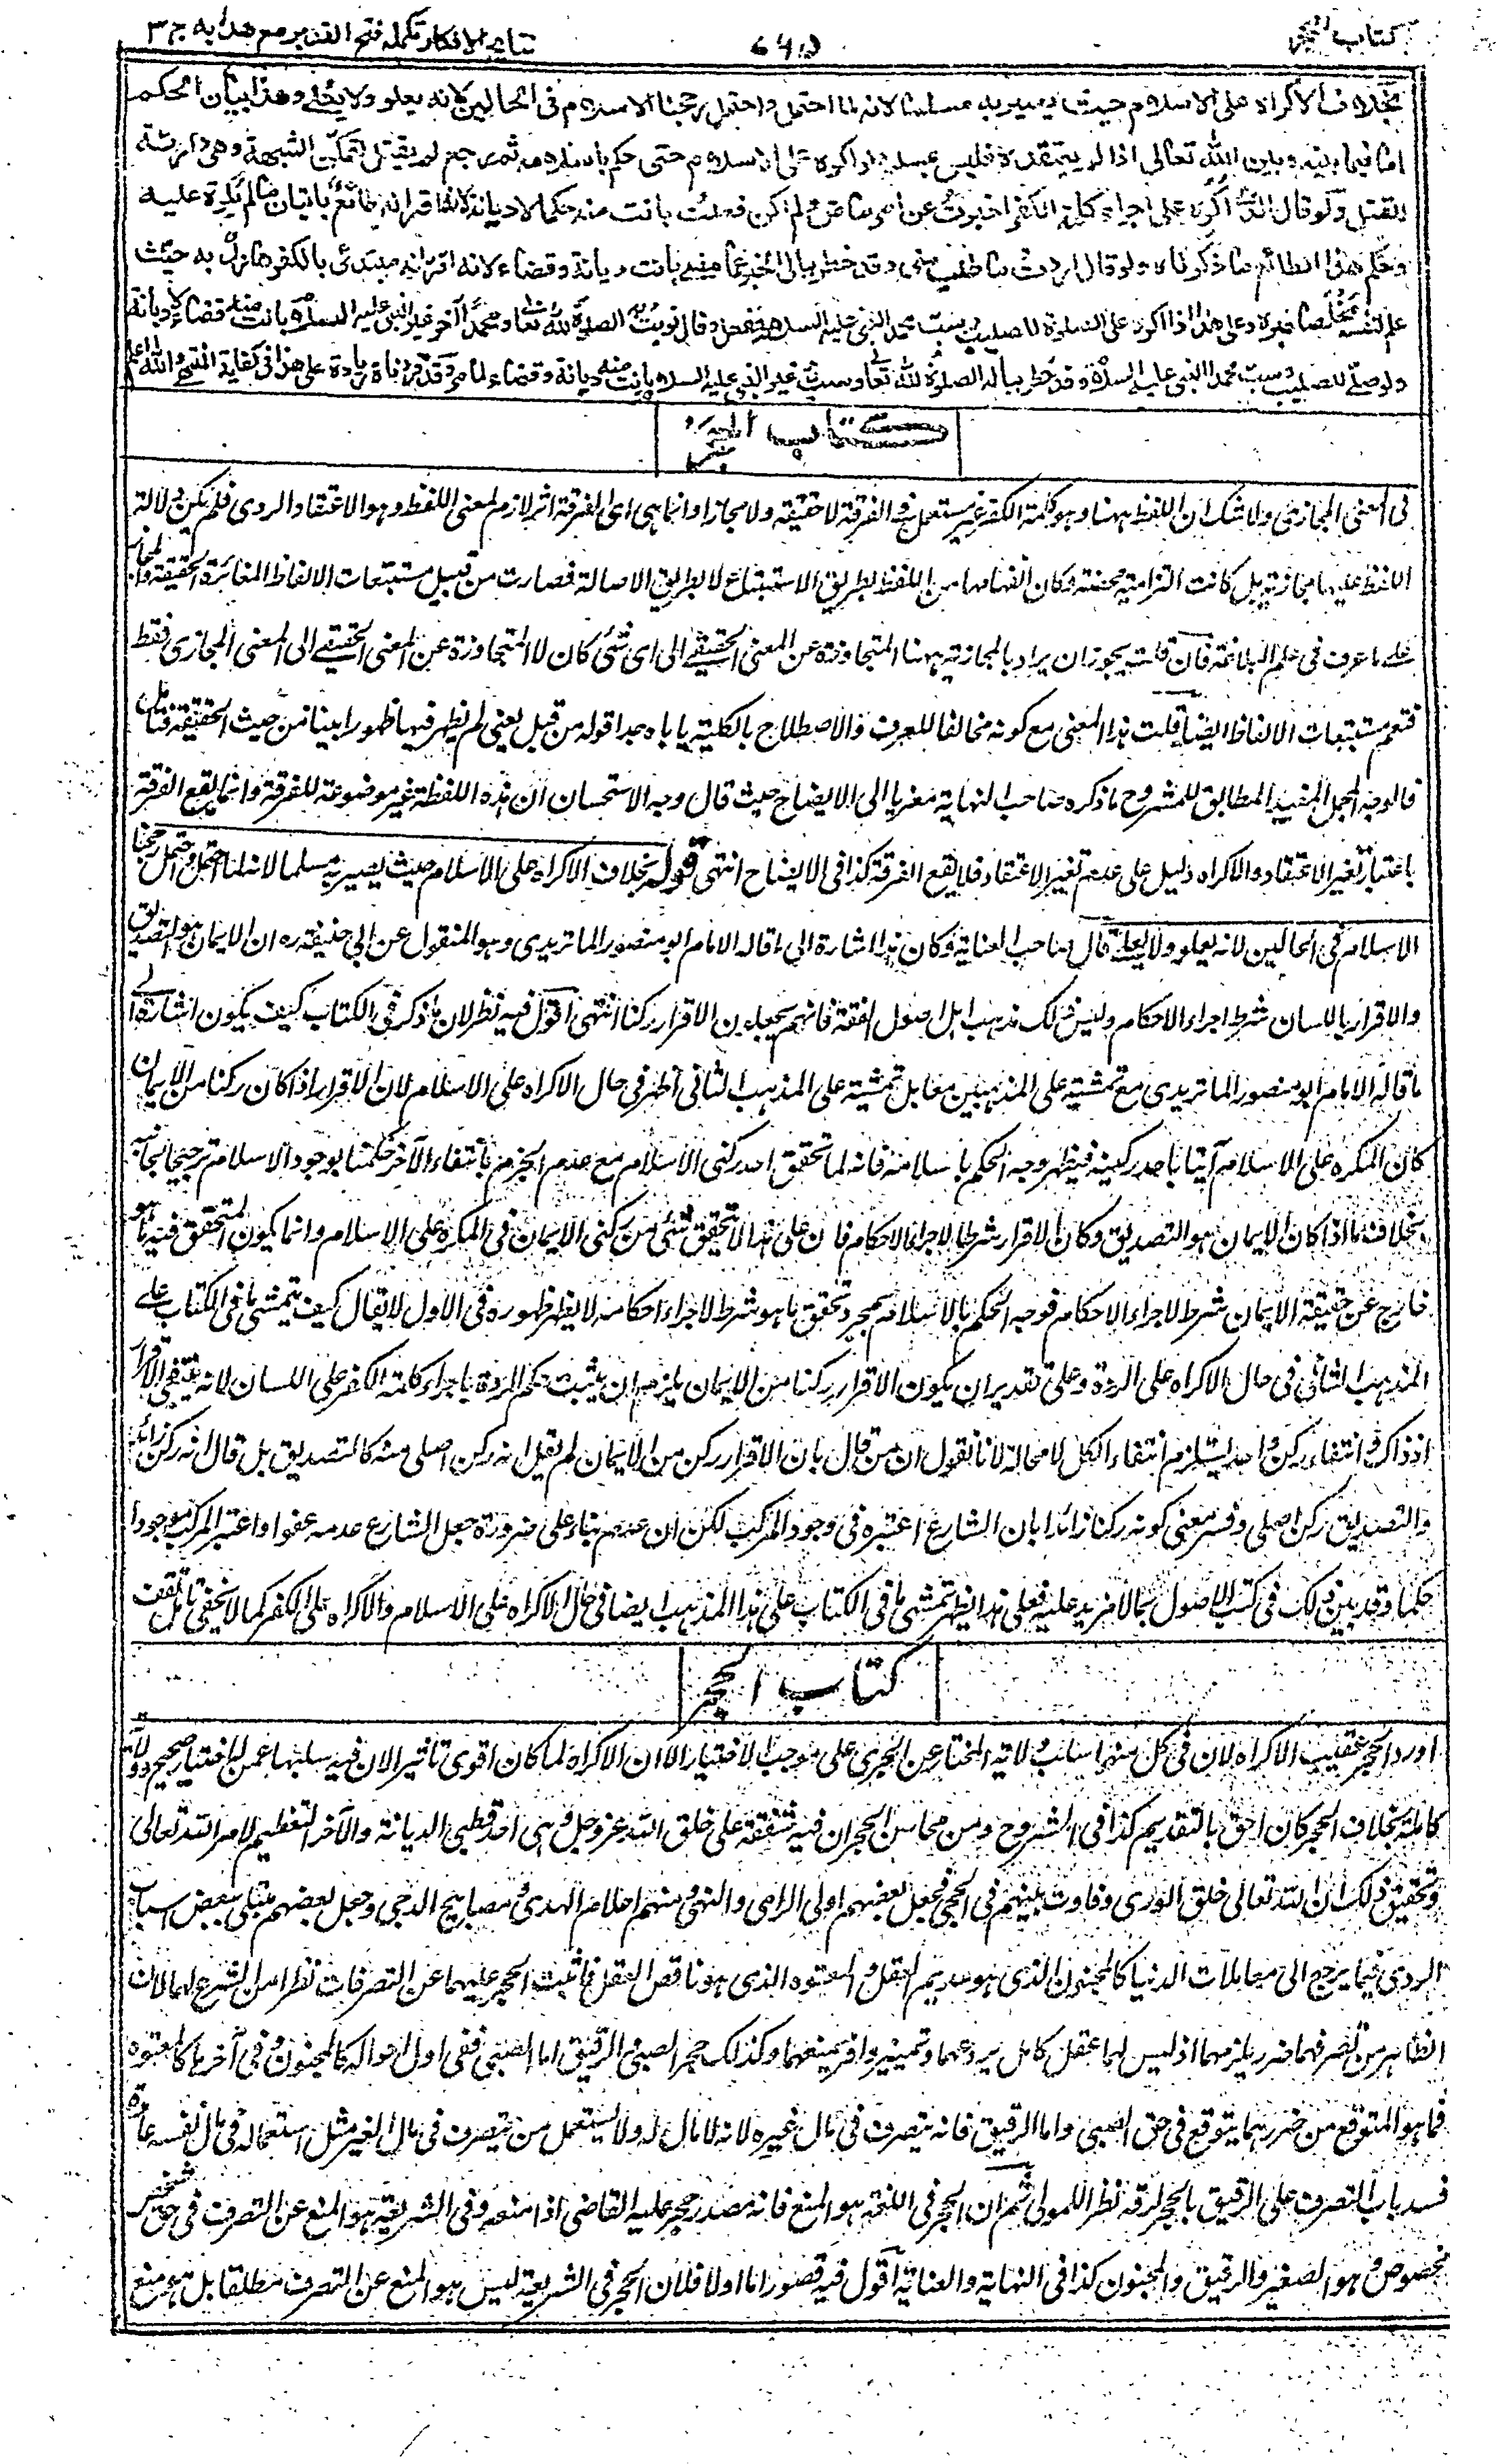 كتاب الحجر
نتائج الافكار تكمله فتح القدير مع هدايه ج ٣
بخلاف الاكراه على الاسلام حيث يصير به مسلما لانه لما احتمل واحتمل رجحنا الاسلام فى الحالين لانه يعلو ولا يعلى وهذا بيان الحكم
اما فيما بينه وبين الله تعالى اذا لم يعتقده فليس بمسلم ولو اكره على الاسلام حتى حكم باسلامه ثم رجع لم يقتل لتمكن الشبهة وهى دارئة
للقتل ولو قال الذى اكره على اجراء كلمة الكفر اخبرت عن امر ماض ولم اكن فعلت بانت منه حكما لا ديانة لانه اقر انه طائع باتيان ما لم يكره عليه
وحكم هذا الطائع ما ذكرناه ولو قال اردت ما طلب منى وقد خطر ببالى الخبر عما مضى بانت ديانة وقضاء لانه اقر انه مبتدئ بالكفر هازل به حيث
علم لنفسه مخلصا غيره وعلى هذا اذا اكره على الصلوة للصليب وسب محمد النبى عليه السلام ففعل وقال نويت به الصلوة لله تعالى ومحمدا آخر غير النبى عليه السلام بانت منه قضاء لا ديانة
ولو صلى للصليب وسب محمدا النبى عليه السلام وقد خطر بباله الصلوة لله تعالى وسب غير النبى عليه السلام بانت منه ديانة وقضاء لما مر وقد قررناه زيادة على هذا فى كفاية المنتهى والله اعلم
كتاب الحجر
فى المعنى المجازى ولا شك ان اللفظ ههنا وهو كلمة الكفر غير مستعمل فى الفرقة لا حقيقة ولا مجازا وانما هى اى الفرقة اثر لازم لمعنى اللفظ وهو الاعتقاد الردى فلم يكن دلالة
اللفظ عليها مجازية بل كانت التزامية محضة وكان انفهامها من اللفظ بطريق الاستتباع لا بطريق الاصالة فصارت من قبيل مستتبعات الالفاظ المغائرة للحقيقة والمجاز
على ما عرف فى علم البلاغة فان قلت يجوز ان يراد بالمجازية ههنا المتجاوزة عن المعنى الحقيقى الى اى شئ كان لا المتجاوزة عن المعنى الحقيقى الى المعنى المجازى فقط
فتعم مستتبعات الالفاظ ايضا قلت هذا المعنى مع كونه مخالفا للعرف والاصطلاح بالكلية يأباه جدا قوله من قبل يعنى لم يظهر فيها ظهورا بينا من حيث الحقيقة فتأمل
فالوجه المجمل المفيد المطابق للمشروح ما ذكره صاحب النهاية معزيا الى الايضاح حيث قال وجه الاستحسان ان هذه اللفظة غير موضوعة للفرقة وانما يقع الفرقة
باعتبار تغير الاعتقاد والاكراه دليل على عدم تغير الاعتقاد فلا يقع الفرقة كذا فى الايضاح انتهى قوله بخلاف الاكراه على الاسلام حيث يصير به مسلما لانه لما احتمل واحتمل رجحنا
الاسلام فى الحالين لانه يعلو ولا يعلى قال صاحب العناية وكان هذا اشارة الى ما قاله الامام ابو منصور الماتريدى وهو المنقول عن ابى حنيفة ره ان الايمان هو التصديق
والاقرار باللسان شرط اجراء الاحكام وليس ذلك مذهب اهل اصول الفقه فانهم يجعلون الاقرار ركنا انتهى اقول فيه نظر لان ما ذكر فى الكتاب كيف يكون اشارة الى
ما قاله الامام ابو منصور الماتريدى مع تمشيه على المذهبين معا بل تمشيه على المذهب الثانى اظهر فى حال الاكراه على الاسلام لان الاقرار اذا كان ركنا من الايمان
كان المكره على الاسلام آتيا باحد ركنيه فيظهر وجه الحكم باسلامه فانه لما تحقق احد ركنى الاسلام مع عدم الجزم بانتفاء الآخر حكمنا بوجود الاسلام ترجيحا لجانبه
بخلاف ما اذا كان الايمان هو التصديق وكان الاقرار شرطا لاجراء الاحكام فان على هذا لا يتحقق شئ من ركنى الايمان فى المكره على الاسلام وانما يكون المتحقق فيه ما هو
خارج عن حقيقة الايمان شرط لاجراء الاحكام فوجه الحكم بالاسلام بمجرد تحقق ما هو شرط لاجراء احكامه لا يظهر ظهوره فى الاول لا يقال كيف يتمشى ما فى الكتاب على
المذهب الثانى فى حال الاكراه على الردة وعلى تقدير ان يكون الاقرار ركنا من الايمان يلزم ان يثبت حكم الردة باجراء كلمة الكفر على اللسان لانه ينتفى الاقرار
اذ ذاك وانتفاء ركن واحد يستلزم انتفاء الكل لا محالة لانا نقول ان من قال بان الاقرار ركن من الايمان لم يقل انه ركن اصلى منه كالتصديق بل قال انه ركن زائد
والتصديق ركن اصلى وفسر معنى كونه ركنا زائدا بان الشارع اعتبره فى وجود المركب لكن ان عدم بناء على ضرورة جعل الشارع عدمه عفوا واعتبر المركب موجودا
حكما وقد بين ذلك فى كتب الاصول بما لا مزيد عليه فعلى هذا يظهر تمشى ما فى الكتاب على هذا المذهب ايضا فى حال الاكراه على الاسلام والاكراه على الكفر كما لا يخفى تأمل تقف
كتاب الحجر
اورد الحجر عقيب الاكراه لان فى كل منهما سلب ولاية المختار عن الجرى على موجب الاختيار الا ان الاكراه لما كان اقوى تاثيرا لان فيه سلبها عمن له اختيار صحيح وولاية
كاملة بخلاف الحجر كان احق بالتقديم كذا فى الشروح ومن محاسن الحجر ان فيه شفقة على خلق الله عز وجل وهى احد قطبى الديانة والآخر التعظيم لامر الله تعالى
وتحقيق ذلك ان الله تعالى خلق الورى وفاوت بينهم فى الحجى فجعل بعضهم اولى الراى والنهى ومنهم اعلام الهدى ومصابيح الدجى وجعل بعضهم مبتلى ببعض اسباب
الردى فيما يرجع الى معاملات الدنيا كالمجنون الذى هو عديم العقل والمعتوه الذى هو ناقص العقل فاثبت الحجر عليهما عن التصرفات نظرا من الشرع لهما لان
الظاهر من تصرفهما ضرر يلزمهما اذ ليس لهما عقل كامل يردعهما وتمييز وافر يمنعهما وكذلك حجر الصبى والرقيق اما الصبى ففى اول احواله كالمجنون وفى آخرها كالمعتوه
فما هو المتوقع من ضررهما يتوقع فى حق الصبى واما الرقيق فانه يتصرف فى مال غيره لانه لا مال له ولا يستعمل من يتصرف فى مال الغير مثل استعماله فى مال نفسه عادة
فسد باب التصرف على الرقيق بالحجر لرقه نظرا للمولى ثم ان الحجر فى اللغة هو المنع فانه مصدر حجر عليه القاضى اذا منعه وفى الشريعة هو المنع عن التصرف فى حق شخص
مخصوص وهو الصغير والرقيق والمجنون كذا فى النهاية والعناية اقول فيه قصور اما اولا فلان الحجر فى الشريعة ليس هو المنع عن التصرف مطلقا بل هو منع